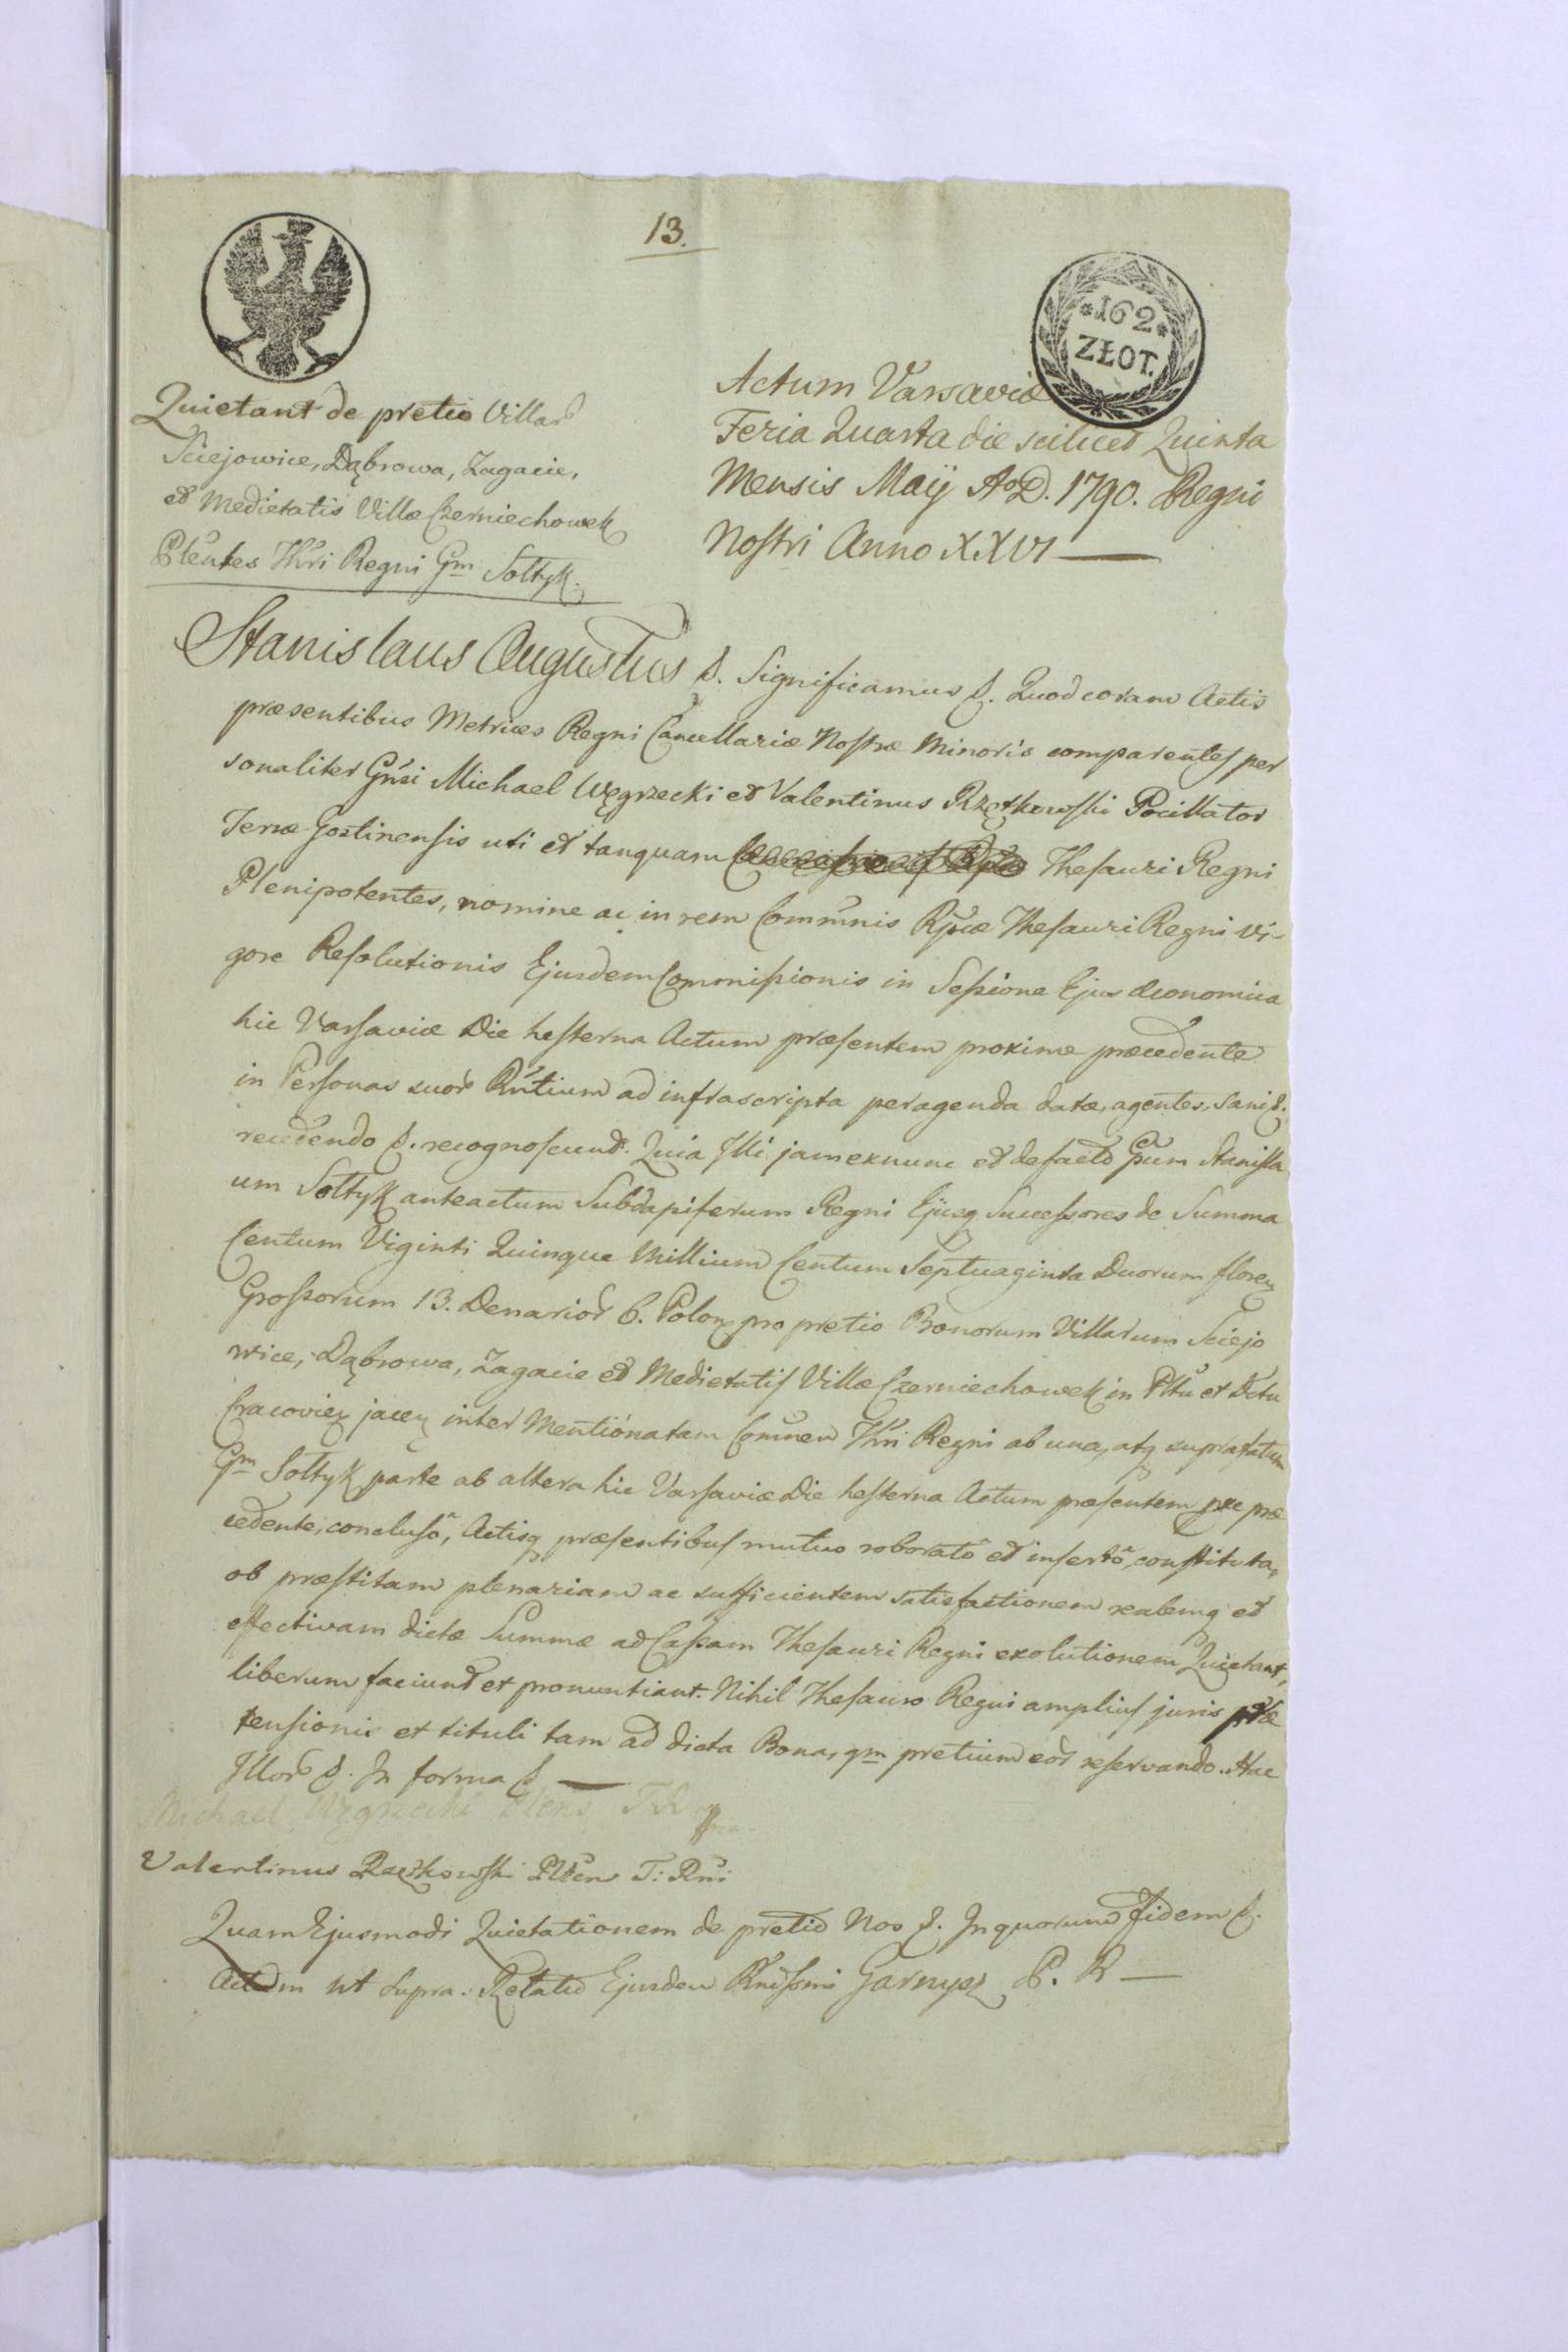 13.
*162*
ZŁOT.
Quietant de pretio Villar
Sciejowice, Dąbrowa, Zagacie,
et Medietatis Villæ Czerniechowek
Plentes Thri Regni Gm Sołtyk.
Actum Varsaviæ
Feria Quarta die scilicet Quinta
Mensis Maij AoD. 1790. Regni
Nostri Anno XXVI
Stanislaus Augustus &. Significamus &. Quod coram Actis
præsentibus Metrices Regni Cancellariæ Nostræ Minoris comparentes per
sonaliter Gnsi Michael Węgrzecki et Valentinus Rzętkowski Pocillator
Terræ Gostinensis uti et tanquam Thesauri Regni
Plenipotentes, nomine ac in rem Commnis Rpcæ Thesauri Regni vi-
gore Resolutionis Ejusdem Commissionis in Sessione Ejus Œconomica
hic Varsaviæ Die hesterna Actum præsentem proxime præcedente
in Personas suor Rntium ad infrascripta peragenda datæ, agentes, sani &.
recedendo &. recognoscunt. Quia Illi jam exnunc et defacto Gsum Stanisla
um Sołtyk anteactum Subdapiferum Regni Ejusq Successores de Summa
Centum Viginti Quinque Millium Centum Septuaginta Duorum floren
Grossorum 13. Denarior 6. Polon pro pretio Bonorum Villarum Sciejo
wice, Dąbrowa, Zagacie et Medietatis Villæ Czerniechowek in Pltu et Dctu
Cracovien jacen inter Mentionatam Commnem Thri Regni ab una, atq supra fatum
Gm Sołtyk parte ab altera hic Varsaviæ Die hesterna Actum præsentem præ
cedente, conclusô, Actisq præsentibus mutuo roboratô et insertô, constituta,
ob præstitam plenariam ac sufficientem satisfactionem realemq et
effectivam dictæ Summæ ad Cassam Thesauri Regni exolutionem Quietant,
liberum faciunt et pronuntiant. Nihil Thesauro Regni amplius juris præ
tensionis et tituli tam ad dicta Bona, qm pretium eor reservando. Hac
Illor &. In forma &
Michael Węgrzecki Plens T R
Valentinus Rzętkowski Pltens T: Rni
Quam Ejusmodi Quietationem de pretio Nos &. In quorum Fidem &.
Actum ut supra. Relatio Ejusdem Rndssmi Garnysz P. R